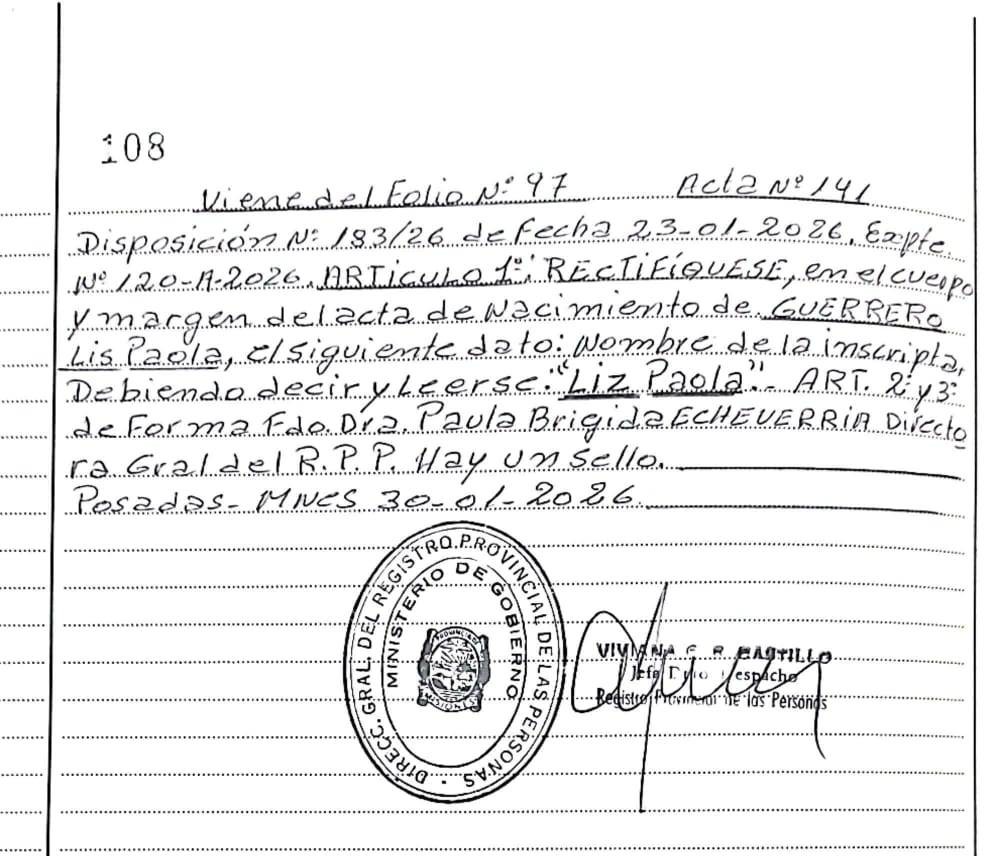 108
Viene del Folio Nº 97 Acta Nº 141
Disposición Nº 183/26 de fecha 23-01-2026. Expte.
Nº 120-A-2026. ARTICULO 1º: RECTIFÍQUESE, en el cuerpo
y margen del acta de Nacimiento de GUERRERO
Lis Paola, el siguiente dato: Nombre de la inscripta,
Debiendo decir y Leerse: "Liz Paola".- ART. 2º y 3º
de Forma Fdo. Dra. Paula Brigida ECHEVERRIA Directo
ra Gral del R.P.P. Hay un Sello.
Posadas- MNES 30-01-2026.
DIRECC. GRAL. DEL REGISTRO PROVINCIAL DE LAS PERSONAS
MINISTERIO DE GOBIERNO
PROVINCIA DE
MISIONES
VIVIANA CASTILLO
Jefe Despacho
Registro Provincial de las Personas